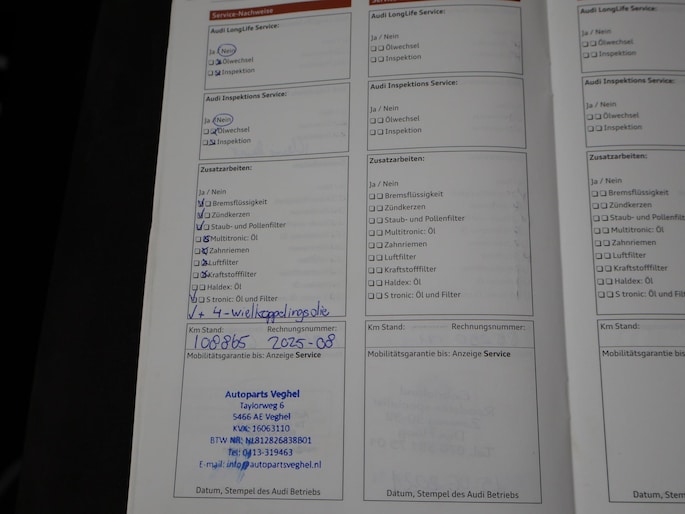 Service-Nachweise
Audi LongLife Service:
Ja / Nein
Ölwechsel
Inspektion
Audi Inspektions Service:
Ja / Nein
Ölwechsel
Inspektion
Zusatzarbeiten:
Ja / Nein
Bremsflüssigkeit
Zündkerzen
Staub- und Pollenfilter
Multitronic: Öl
Zahnriemen
Luftfilter
Kraftstofffilter
Haldex: Öl
S tronic: Öl und Filter
+ 4-wielkoppelingsolie
Km Stand: Rechnungsnummer:
108865 2025-08
Mobilitätsgarantie bis: Anzeige Service
Autoparts Veghel
Taylorweg 6
5466 AE Veghel
KVK: 16063110
BTW NR: NL812826838B01
Tel: 0413-319463
E-mail: info@autopartsveghel.nl
Datum, Stempel des Audi Betriebs
Audi LongLife Service:
Ja / Nein
Ölwechsel
Inspektion
Audi Inspektions Service:
Ja / Nein
Ölwechsel
Inspektion
Zusatzarbeiten:
Ja / Nein
Bremsflüssigkeit
Zündkerzen
Staub- und Pollenfilter
Multitronic: Öl
Zahnriemen
Luftfilter
Kraftstofffilter
Haldex: Öl
S tronic: Öl und Filter
Km Stand: Rechnungsnummer:
Mobilitätsgarantie bis: Anzeige Service
Datum, Stempel des Audi Betriebs
Audi LongLife Service:
Ja / Nein
Ölwechsel
Inspektion
Audi Inspektions Service:
Ja / Nein
Ölwechsel
Inspektion
Zusatzarbeiten:
Ja / Nein
Bremsflüssigkeit
Zündkerzen
Staub- und Pollenfilt
Multitronic: Öl
Zahnriemen
Luftfilter
Kraftstofffilter
Haldex: Öl
S tronic: Öl und Filte
Km Stand:
Mobilitätsgarantie bis:
Datum, Stempel